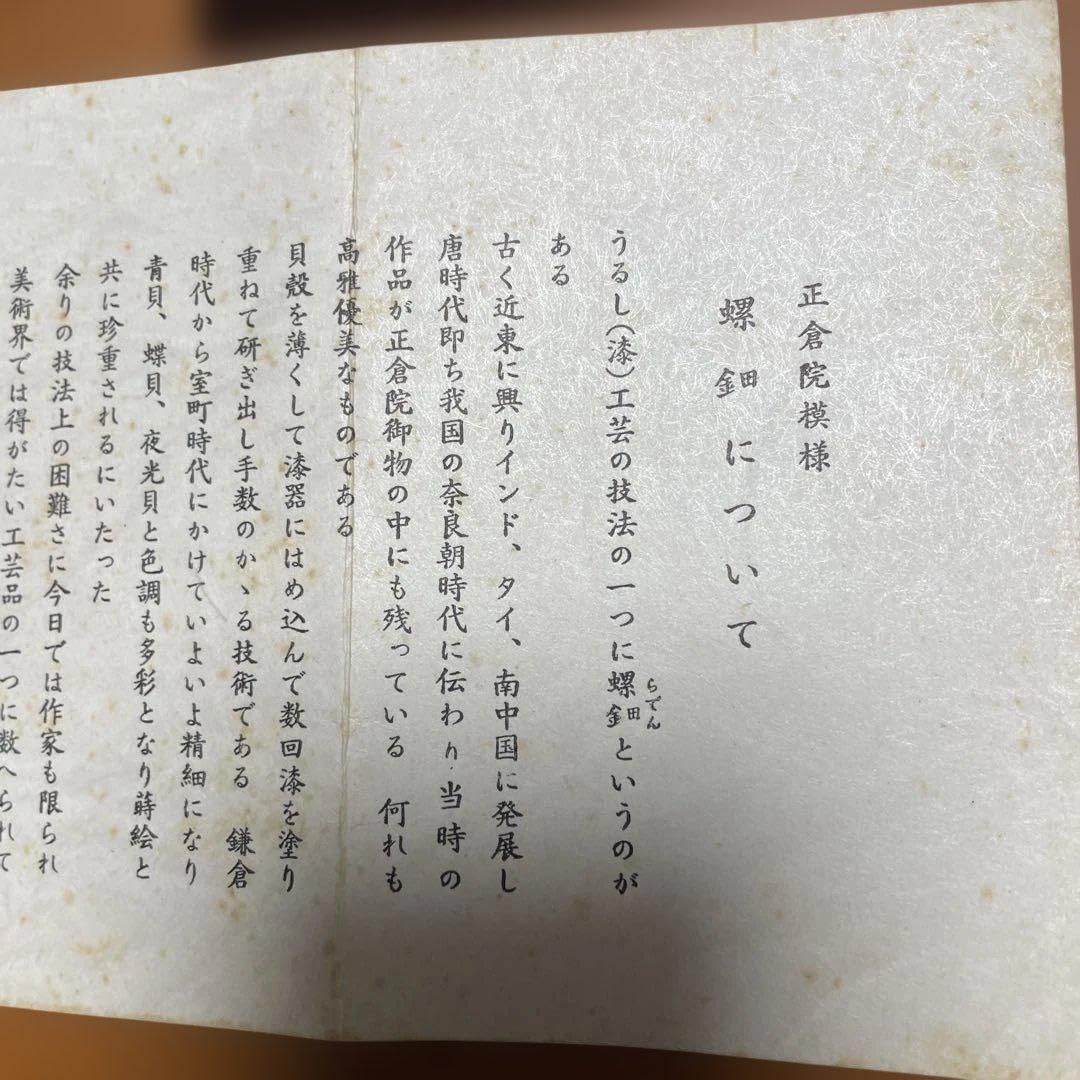 正倉院模様
螺鈿について
うるし(漆)工芸の技法の一つに螺鈿というのが
らでん
ある
古く近東に興りインド、タイ、南中国に発展し
唐時代即ち我国の奈良朝時代に伝わり当時の
作品が正倉院御物の中にも残っている 何れも
高雅優美なものである
貝殻を薄くして漆器にはめ込んで数回漆を塗り
重ねて研ぎ出し手数のかゝる技術である 鎌倉
時代から室町時代にかけていよいよ精細になり
青貝、蝶貝、夜光貝と色調も多彩となり蒔絵と
共に珍重されるにいたった
余りの技法上の困難さに今日では作家も限られ
美術界では得がたい工芸品の一つに数へられて